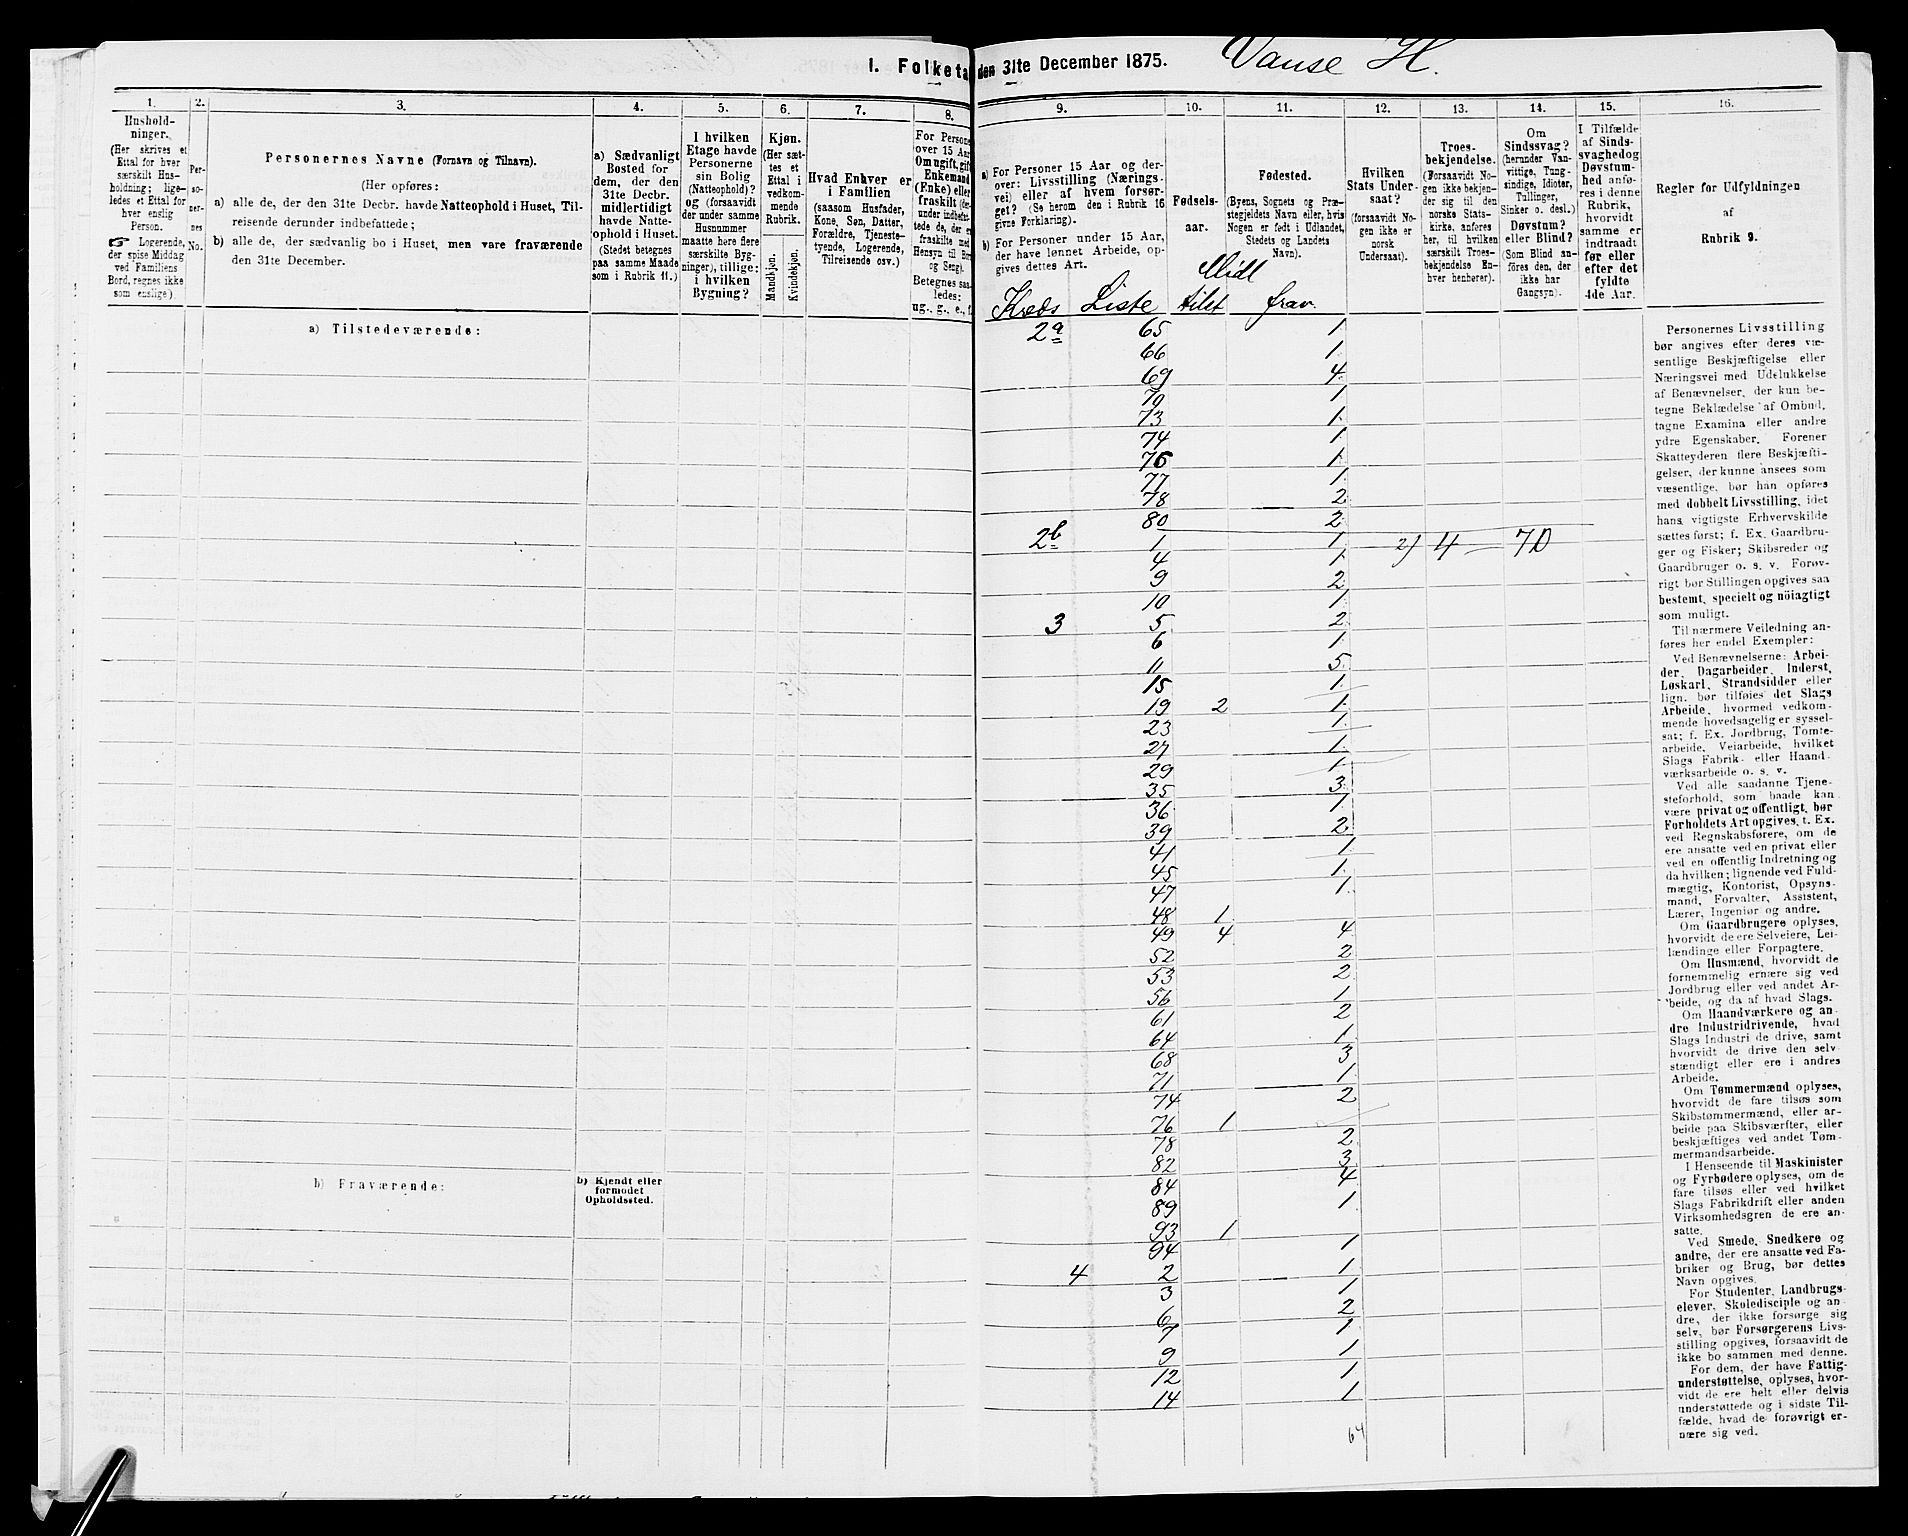 1. Folketa
den 31te December 1875. Vanse H.
1. 2. 3. 4. 5. 6. 7. 8. 9. 10. 11. 12. 13. 14. 15. 16.
Hushold-
ninger.
(Her skrives et
Ettal for hver
særskilt Hus-
holdning; lige-
ledes et Ettal for
hver enslig
Person.
☞ Logerende,
der spise Middag
ved Familiens
Bord, regnes ikke
som enslige)
Per-
so-
ner-
nes
No.
Personernes Navne (Fornavn og Tilnavn).
(Her opføres:
a) alle de, der den 31te Decbr. havde Natteophold i Huset, Til-
reisende derunder indbefattede;
b) alle de, der sædvanlig bo i Huset, men vare fraværende
den 31te December.
a) Sædvanligt
Bosted for
dem, der den
31te Decbr.
midlertidigt
havde Natte-
ophold i Huset.
(Stedet betegnes
paa samme Maade
som i Rubrik 11.)
I hvilken
Etage havde
Personerne
sin Bolig
(Natteophold)?
og (forsaavidt
der under samme
Husnummer
maatte høre flere
særskilte Byg-
ninger), tillige:
i hvilken
Bygning?
Kjøn.
(Her sæt-
tes et
Ettal i
vedkom-
mende
Rubrik.
Mandkjøn.
Kvindekjøn.
Hvad Enhver er
i Familien
(saasom Husfader,
Kone, Søn, Datter,
Forældre, Tjeneste-
tyende, Logerende,
Tilreisende osv.)
For Persone
over 15 Aar
Om ugift, gift
Enkemand
(Enke) eller
fraskilt (der-
under indbefat-
tede de, der er
fraskilte med
Hensyn til Bor
og Seng).
Betegnes saa-
ledes:
ug., g., e., f.
a) For Personer 15 Aar og der-
over: Livsstilling (Nærings-
vei) eller af hvem forsør-
get? (Se herom den i Rubrik 16
givne Forklaring).
b) For Personer under 15 Aar,
der have lønnet Arbeide, op-
gives dettes Art.
Fødsels-
aar.
Fødested.
(Byens, Sognets og Præ-
stegjeldets Navn eller, hvis
Nogen er født i Udlandet,
Stedets og Landets
Navn).
Hvilken
Stats Under-
saat?
(forsaavidt No-
gen ikke er
norsk
Undersaat).
Troes-
bekjendelse.
(Forsaavidt No-
gen ikke bekjen-
der sig til den
norske Stats-
kirke, anføres
her, til hvilken
særskilt Troes-
bekjendelse En-
hver henhører).
Om
Sindssvag?
(herunder Van-
vittige, Tung-
sindige, Idioter,
Tullinger,
Sinker o. desl.)
Døvstum?
eller Blind?
(Som Blind an-
føres den, der
ikke har
Gangsyn).
I Tilfælde
af Sinds-
svaghed og
Døvstum-
hed anfø-
res i denne
Rubrik,
hvorvidt
samme er
indtraadt
før eller
efter det
fyldte
4de Aar.
Regler for Udfyldningen
af
Rubrik 9.
Midl
Kreds Liste tilst frav.
a) Tilstedeværende:
2a 65 1
66 1
69 4
70 1
73 1
74 1
76 1
77 1
78 2
80 2
2b 1 1 2) 4 – 70
4 1
9 2
10 1
3 5 2
6 1
11 5
15 1
19 2 1
23 1
27 1
29 1
35 3
36 1
39 2
41 1
45 1
47 1
48 1
49 4 4
52 2
53 2
56 1
61 2
64 1
68 3
71 1
74 2
76 1
78 2
82 3
b) Fraværende:
b) Kjendt eller
formodet
Opholdssted.
84 4
89 1
93 1
94 1
4 2 1
3 1
6 2
7 1
9 1
12 1
14 1
64
Personernes Livsstilling
bør angives efter deres væ-
sentlige Beskjæftigelse eller
Næringsvei med Udelukkelse
af Benævnelser, der kun be-
tegne Beklædelse af Ombud,
tagne Examina eller andre
ydre Egenskaber. Forener
Skatteyderen flere Beskjæfti-
gelser, der kunne ansees som
væsentlige, bør han opføres
med dobbelt Livsstilling, idet
hans vigtigste Erhvervskilde
sættes først; f. Ex. Gaardbru-
ger og Fisker; Skibsreder og
Gaardbruger o. s. v. Forøv-
rigt bør Stillingen opgives saa
bestemt, specielt og nöiagtigt
som muligt.
Til nærmere Veiledning an-
føres her endel Exempler:
Ved Benævnelserne: Arbei-
der, Dagarbeider, Inderst,
Løskarl, Strandsidder eller
lign. bør tilføies det Slags
Arbeide, hvormed vedkom-
mende hovedsagelig er syssel-
sat; f. Ex. Jordbrug, Tomte-
arbeide, Veiarbeide, hvilket
Slags Fabrik- eller Haand-
værksarbeide o. s. v.
Ved alle saadanne Tjene-
steforhold, som baade kan
være privat og offentligt, bør
Forholdets Art opgives, t. Ex.
ved Regnskabsførere, om de
ere ansatte ved en privat eller
ved en offentlig Indretning og
da hvilken; lignende ved Fuld-
mægtig, Kontorist, Opsyns-
mand, Forvalter, Assistent,
Lærer, Ingeniør og andre.
Om Gaardbrugere oplyses,
hvorvidt de ere Selveiere, Lei-
lændinge eller Forpagtere.
Om Husmænd, hvorvidt de
fornemmelig ernære sig ved
Jordbrug eller ved andet Ar-
beide, og da af hvad Slags.
Om Haandværkere og an-
dre Industridrivende, hvad
Slags Industri de drive, samt
hvorvidt de drive den selv-
stændigt eller ere i andres
Arbeide.
Om Tømmermænd oplyses,
hvorvidt de fare tilsøs som
Skibstømmermænd, eller ar-
beide paa Skibsværfter, eller
beskjæftiges ved andet Tøm-
mermandsarbeide.
I Henseende til Maskinister
og Fyrbødere oplyses, om de
fare tilsøs eller ved hvilket
Slags Fabrikdrift eller anden
Virksomhedsgren de ere an-
satte.
Ved Smede, Snedkere og
andre, der ere ansatte ved Fa-
briker og Brug, bør dettes
Navn opgives.
For Studenter, Landbrugs-
elever, Skoledisciple og an-
dre, der ikke forsørge sig
selv, bør Forsørgerens Livs-
stilling opgives, forsaavidt de
ikke bo sammen med denne.
For dem, der have Fattig-
understøttelse, oplyses, hvor-
vidt de ere helt eller delvis
understøttede og i sidste Til-
fælde, hvad de forøvrigt er-
nære sig ved.